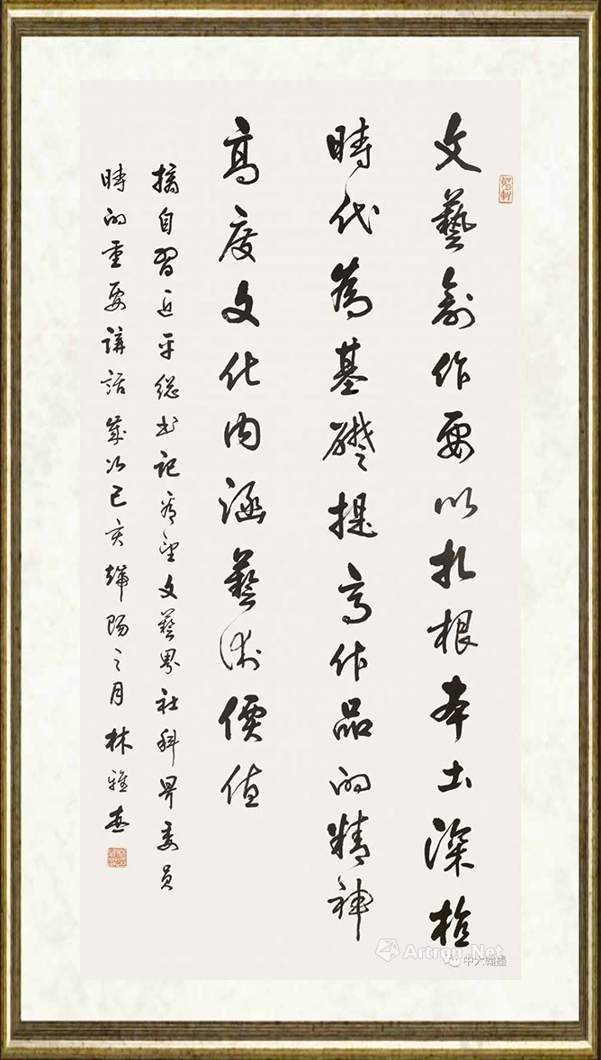 文藝創作要以扎根本土深植
時代為基礎提高作品的精神
高度文化内涵藝術價值
摘自習近平總書記看望文藝界社科界委員
時的重要講話歲次己亥端陽之月林雅杰
Artron.Net